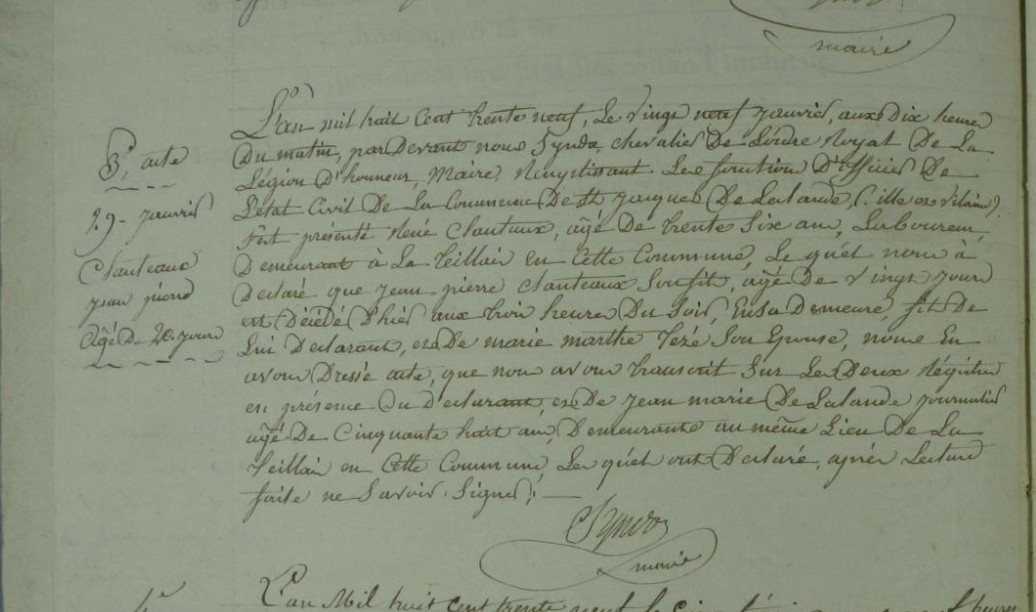 maire
3e, acte
29 janvier
Chauteaux
jean pierre
âgé De 20 jours
L'an mil huit Cent trente neuf, Le vingt neuf janvier, aux Dix heure
Du matin, par Devant nous Synda, chevalier De L'ordre Royal De La
Légion D'honneur, Maire, Les fonction D'officier De
L'état Civil De La Commune De St jacques De Lalande, (ille et vilaine)
s'est présenté René Chauteaux, âgé De trente Six ans, Laboureur,
Demeurant à La Teillais en Cette Commune, Le quel nous à
Déclaré que jean pierre Chauteaux Son fils, âgé De vingt jours
est Décédé D'hier aux trois heures Du Soir, En Sa Demeure, fils De
Lui Déclarant, et De marie marthe Tézé Son Epouse, nous En
avons Dressé acte, que nous avons transcrit Sur Les Deux Régistres
en présence Du Déclarant, et De jean marie De Lalande journalier
âgé De Cinquante huit ans, Demeurante au même Lieu De La
Teillais en Cette Commune, Les quels ont Déclaré, après Lecture
faite ne Savoir Signer.
Synda
maire
L'an Mil huit cent trente neuf le